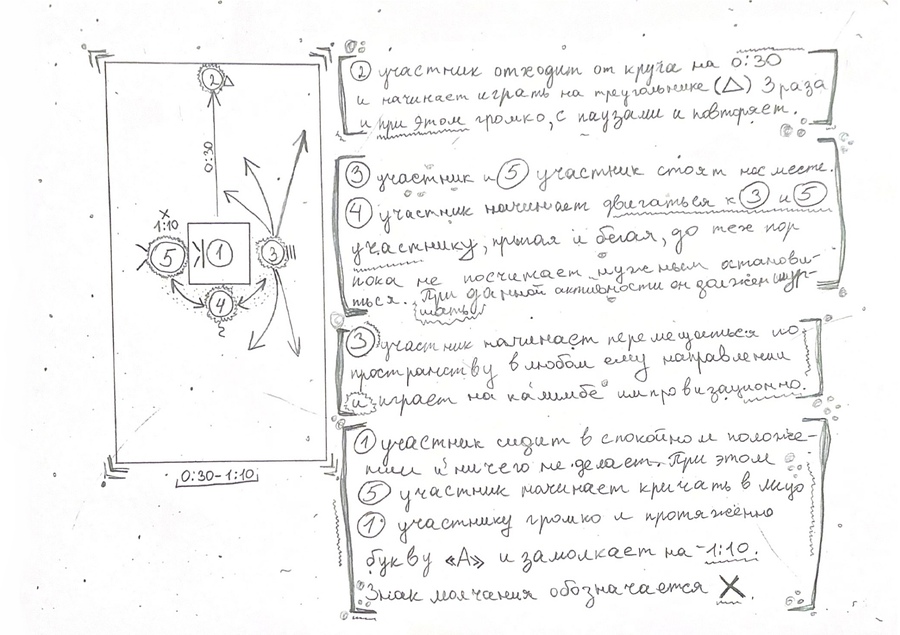 2
0:30
X
1:10
5
1
3
4
0:30-1:10
② участник отходит от круга на 0:30
и начинает играть на треугольнике (△) 3 раза
и при этом громко, с паузами и повторяет.
③ участник и ⑤ участник стоят на месте.
④ участник начинает двигаться к ③ и ⑤
участнику, прыгая и бегая, до тех пор
пока не посчитает нужным останови-
ться. При данной активности он должен шур-
шать
③ участник начинает перемещаться по
пространству в любом ему направлении
и играет на калимбе импровизационно.
① участник сидит в спокойном положе-
нии и ничего не делает. При этом
⑤ участник начинает кричать в лицо
① участнику громко и протяжённо
букву «А» и замолкает на 1:10.
Знак молчания обозначается X